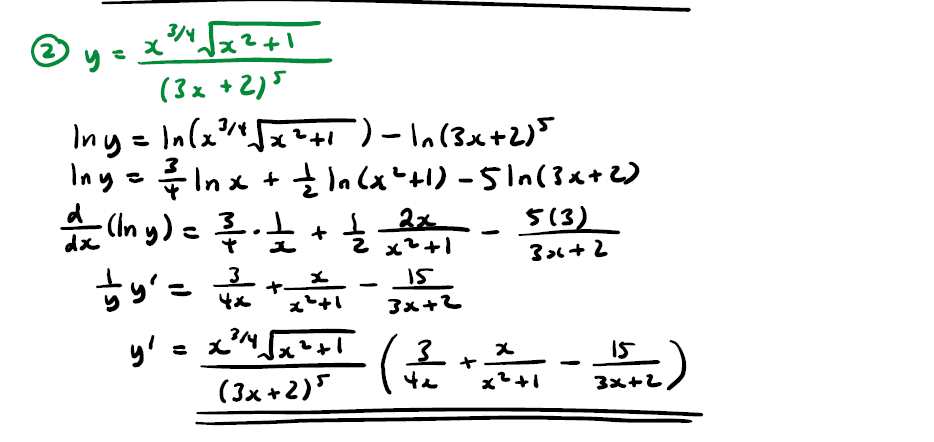 ② y = x^{3/4}√(x²+1) / (3x+2)⁵
ln y = ln(x^{3/4}√(x²+1)) − ln(3x+2)⁵
ln y = 3/4 ln x + 1/2 ln(x²+1) − 5 ln(3x+2)
d/dx (ln y) = 3/4 · 1/x + 1/2 2x/(x²+1) − 5(3)/(3x+2)
1/y y' = 3/(4x) + x/(x²+1) − 15/(3x+2)
y' = x^{3/4}√(x²+1) / (3x+2)⁵ (3/(4x) + x/(x²+1) − 15/(3x+2))